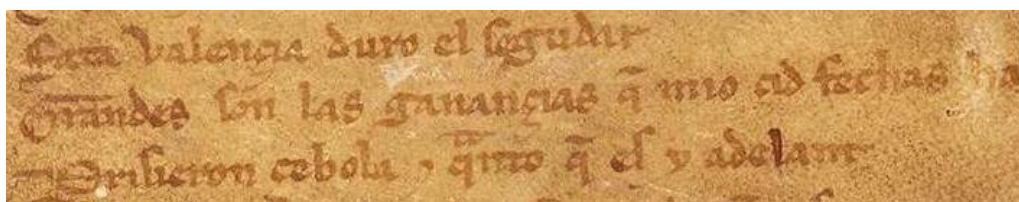 Fata valençia duro el segudar
Grandes son las ganançias q̃ mio çid fechas ha
Prisieron çebola ⁊ q̃nto q̃ es y adelant